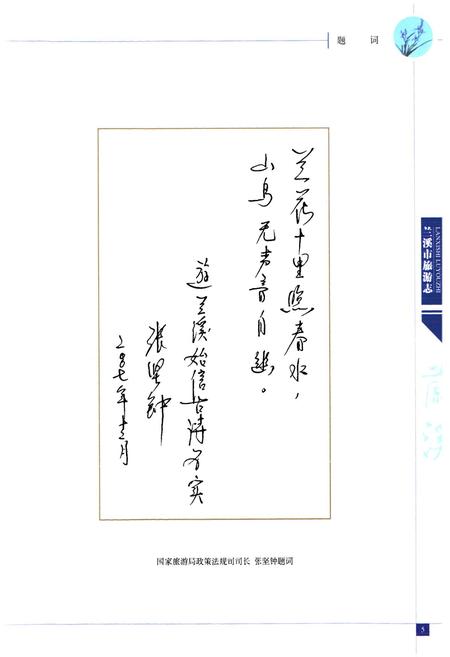 题 词
兰花十里照春水，
山鸟无声香自幽。
游兰溪始信古诗为实
张坚钟
二〇〇七年十二月
LANXISHI LUYOUZHI
兰溪市旅游志
国家旅游局政策法规司司长 张坚钟题词
5